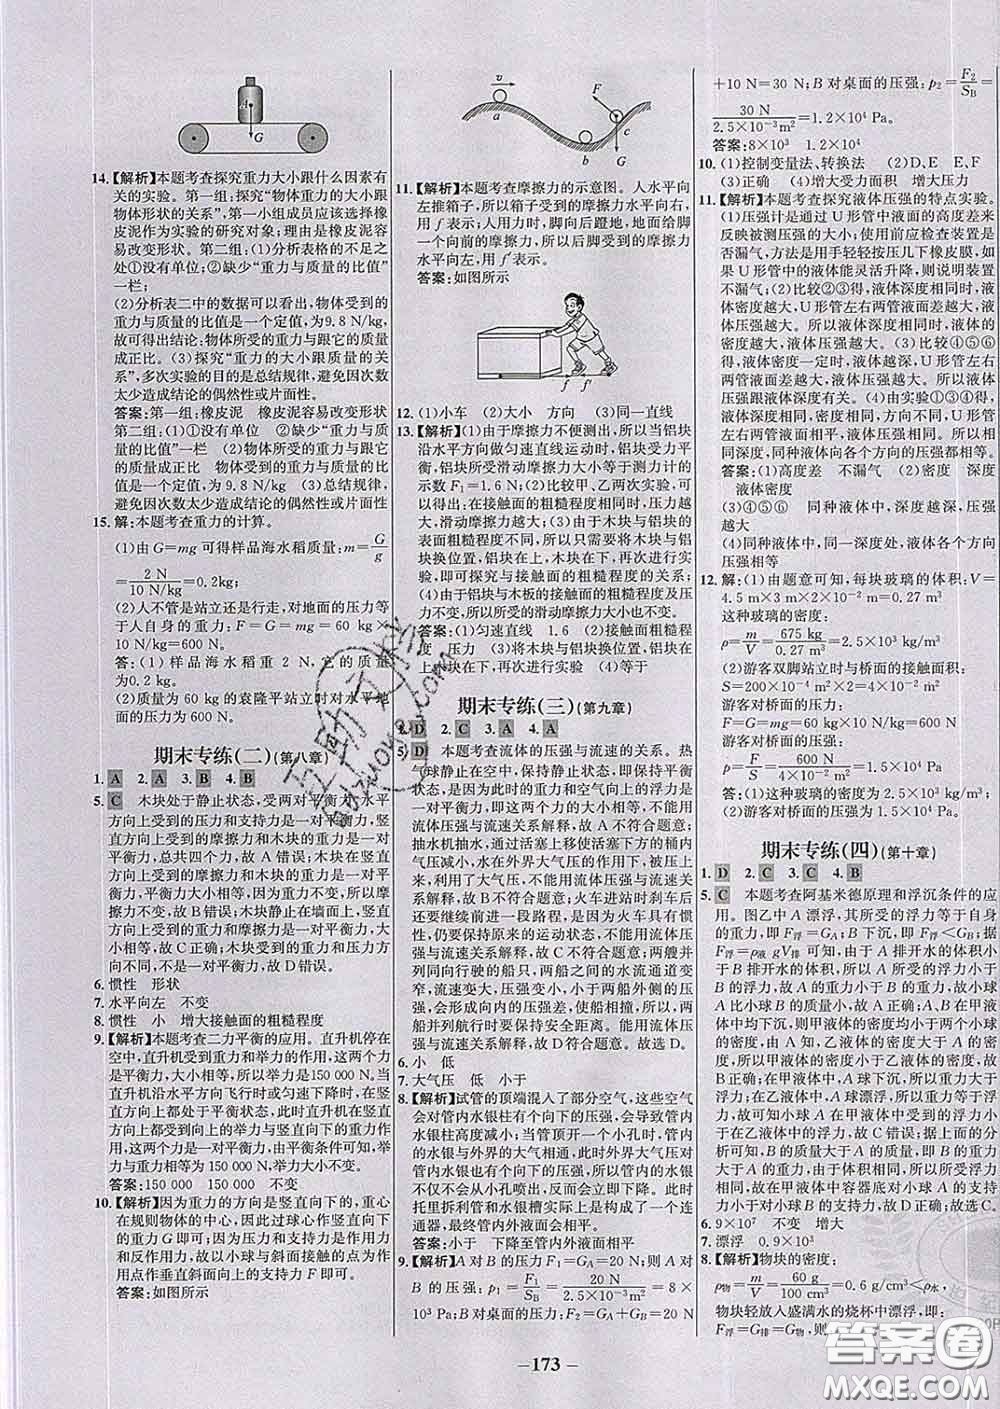 A
G
14.【解析】本题考查探究重力大小跟什么因素有
关的实验。第一组:探究“物体重力的大小跟
物体形状的关系”,第一小组成员应该选择橡
皮泥作为实验的研究对象;理由是橡皮泥容
易改变形状。第二组:(1)分析表格的不足之
处:①没有单位;②缺少“重力与质量的比值”
一栏;
(2)分析表二中的数据可以看出,物体受到的
重力与质量的比值是一个定值,为9.8 N/kg,
故可得出结论:物体所受的重力与跟它的质量
成正比。(3)探究“重力的大小跟质量的关
系”,多次实验的目的是总结规律,避免因次数
太少造成结论的偶然性或片面性。
答案:第一组:橡皮泥 橡皮泥容易改变形状
第二组:(1)①没有单位 ②缺少“重力与质
量的比值”一栏 (2)物体所受的重力与跟它
的质量成正比 物体受到的重力与质量的比
值是一个定值,为9.8 N/kg (3)总结规律,
避免因次数太少造成结论的偶然性或片面性
15.解:本题考查重力的计算。
(1)由G=mg可得样品海水稻质量:m=G/g
=2 N/10 N/kg=0.2kg;
(2)人不管是站立还是行走,对地面的压力等
于人自身的重力:F=G=mg=60 kg×
10 N/kg=600 N。
答:(1)样品海水稻重2 N,它的质量
为0.2 kg。
(2)质量为60 kg的袁隆平站立时对水平地
面的压力为600 N。
期末专练(二)(第八章)
1. A 2. A 3. B 4. B
5. C 木块处于静止状态,受两对平衡力,水平
方向上受到的压力和支持力是一对平衡力,竖
直方向上受到的摩擦力和木块的重力是一对
平衡力,总共四个力,故A错误;木块在竖直
方向上受到的重力和摩擦力是一对平衡力,平
衡力大小相等,因为木块的重力不变,所以摩
擦力不变,故B错误;木块静止在墙面上,竖直
方向上受到的重力和摩擦力是一对平衡力,大
小相等,故C正确;木块受到的重力和压力方
向不相反,故不是一对平衡力,故D错误。
6. 惯性 形状
7. 水平向左 不变
8. 惯性 小 增大接触面的粗糙程度
9.【解析】本题考查二力平衡的应用。直升机停在
空中,直升机受到重力和举力的作用,这两个力
是平衡力,大小相等,所以举力为150 000 N。当
直升机沿水平方向飞行时或匀速下降时,直升
机都处于平衡状态,此时受到举力与重力的作
用,这两个力是一对平衡力,由平衡条件可知,举
力与重力始终相等为150 000 N,大小不变。
答案:150 000 150 000 不变
10.【解析】因为重力的方向是竖直向下的,重心
在规则物体的中心,因此过球心作竖直向下
的重力G即可;因为压力和支持力是作用力
和反作用力,所以小球与斜面接触的点为作
用点作垂直斜面向上的支持力F即可。
答案:如图所示
v
a
b
c
F
G
11.【解析】本题考查摩擦力的示意图。人水平向
左推箱子,所以箱子受到的摩擦力水平向右,
用f表示;人用力时,脚向后蹬地,地面给脚
一个向前的摩擦力,所以后脚受到的摩擦力
水平向左,用f′表示。
答案:如图所示
f f′
12. (1)小车 (2)大小 方向 (3)同一直线
13.【解析】(1)由于摩擦力不便测出,所以当铝块
沿水平方向做匀速直线运动时,铝块受力平
衡,铝块所受滑动摩擦力大小等于测力计的
示数F₁=1.6 N;(2)比较甲、乙两次实验,
可知,在接触面的粗糙程度相同时,压力越
大,滑动摩擦力越大;(3)由于木块与铝块的
表面粗糙程度不同,所以只需要将木块与铝
块换位置,让铝块在上,木块在下,再次进行实
验,即可探究与接触面的粗糙程度的关系;
(4)由于铝块与木板的接触面的粗糙程度及压力
不变,所以铝块所受的滑动摩擦力大小也不变。
答案:(1)匀速直线 1.6 (2)接触面粗糙程
度 压力 (3)将木块与铝块换位置,铝块在
上、木块在下,再次进行实验 (4)等于
期末专练(三)(第九章)
1. D 2. C 3. A 4. A
5. D 本题考查流体的压强与流速的关系。热
气球静止在空中,保持静止状态,保持平衡状
态,是因为此时的重力和空气向上的浮力是
一对平衡力,大小相等、方向相反,不能用
流体压强与流速关系解释,故A不符合题意;
抽水机抽水,通过活塞上移使活塞下方的桶
内气压减小,水在外界大气压的作用下,被压
上来,与大气压有关,不能用流体压强与流速
关系解释,故B不符合题意;火车进站时刹车后
还要继续前进一段路程,是因为火车具有惯
性,仍要保持原来的运动状态,不能用流体压
强与流速关系解释,故C不符合题意;两艘并
列同向行驶的船只,两船之间的水流通道变
窄,水的流速增大,压强变小,小于两船外侧的
压强,形成向内的压强差,使船相撞,所以,两
船并列航行时要保持安全距离。可用流体压强
与流速关系解释,故D符合题意。故选D。
6. 小 低
7. 大气压 低 小于
8.【解析】试管的顶端混入了部分空气,这些空气
会对管内水银柱有个向下的压强,会导致管内
水银柱高度减小;当管顶开一个小孔时,管内
的水银与外界的大气相通,此时玻璃管的水银
柱上方受到大气压强的作用,会下降,此时的
托里拆利管和水银槽实际上构成了一个连
通器,最终管内外液面会相平。
答案:小于 下降至管内外液面相平
9.【解析】A对B的压力F₁=G_A=20 N,A对
B的压强:p₁=F₁/S_B=20 N/2.5×10⁻³m²=8×
10³ Pa;B对桌面的压力:F₂=G_A+G_B=20 N
+10 N=30 N;B对桌面的压强:p₂=F₂/S_B=
30 N/2.5×10⁻³m²=1.2×10⁴ Pa。
答案:8×10³ 1.2×10⁴
10. (1)控制变量法、转换法 (2)D、E E、F
(3)正确 (4)增大受力面积 增大压力
11.【解析】本题考查探究液体压强的特点实验。
(1)压强计是通过U形管中液面的高度差来
反映被测压强的大小;使用前应检查装置是
否漏气,方法是用手轻轻按压几下橡皮膜,如
果U形管中的液体能灵活升降,则说明装置
不漏气;(2)比较②③得,液体深度相同时,液
体密度越大,U形管左右两管液面差越大,液
体压强越大。所以液体深度相同时,液体的
密度越大,液体压强越大。(3)比较④⑤⑥
得,液体密度一定时,液体越深,U形管左右
两管液面差越大,液体压强越大。所以液体压
强跟液体深度有关。(4)由实验①③④得,液
体密度一定,液体深度相同时,U形管左
右两管液面相平,液体压强相等。所以同种液
体,同一深度,液体向各个方向的压强都相等。
答案:(1)高度差 不漏气 (2)密度 深度
液体密度
(3)④⑤⑥ 同种液体,液体越深,压强
越大
(4)同种液体,同一深度处,液体各个方向
压强相等
12.解:(1)由题意可知,每块玻璃的体积:V=
4.5 m×3 m×2×10⁻² m=0.27 m³
这种玻璃的密度:
ρ=m/V=675 kg/0.27 m³=2.5×10³ kg/m³
(2)游客双脚站立时与桥面的接触面积:
S=200×10⁻⁴ m²×2=4×10⁻² m²
游客对桥面的压力:
F=G=mg=60 kg×10 N/kg=600 N
游客对桥面的压强:
p=F/S=600 N/4×10⁻² m²=1.5×10⁴ Pa。
答:(1)这种玻璃的密度为2.5×10³ kg/m³。
(2)游客对桥面的压强为1.5×10⁴ Pa。
期末专练(四)(第十章)
1. D 2. C 3. C 4. B
5. C 本题考查阿基米德原理和浮沉条件的应
用。图乙中A漂浮,其所受的浮力等于自身
的重力,即F浮=G_A;B下沉,即F浮<G_B;因
此,根据F浮=ρ液gV排可知,由于A排开水的体积小
于B排开水的体积,所以A所受的浮力小于
B的浮力,即A的重力小于B的重力,故小球
A比小球B的质量小,故A正确;A、B在甲液
体中均下沉,所以甲液体的密度均小于两个小球
的密度,由A知,A在乙液体中漂浮,即乙液体的密度大
于A,所以甲液体的密度小于乙液体的密度,故B
正确;在甲液体中,A球下沉,所以浮力小于
重力,在乙液体中,A球漂浮,浮力等于重力,
故可知小球A在甲液体中的浮力小于
在乙液体中的浮力,故C错误;据上面的分析
可知A的重力小于B的重力,根据支持力等于重
力减浮力,在甲液体中容器底对小球A的支
持力小于对小球B的支持力,故D正确。选C。
6. 9×10⁷ 不变 增大
7. 漂浮 0.9×10³
8.【解析】物块的密度:
ρ物=m/V=60 g/100 cm³=0.6 g/cm³<ρ水,
物块轻放入盛满水的烧杯中漂浮,即:
F浮=G排=G物,
- 173 -
答案圈
MXQE.COM